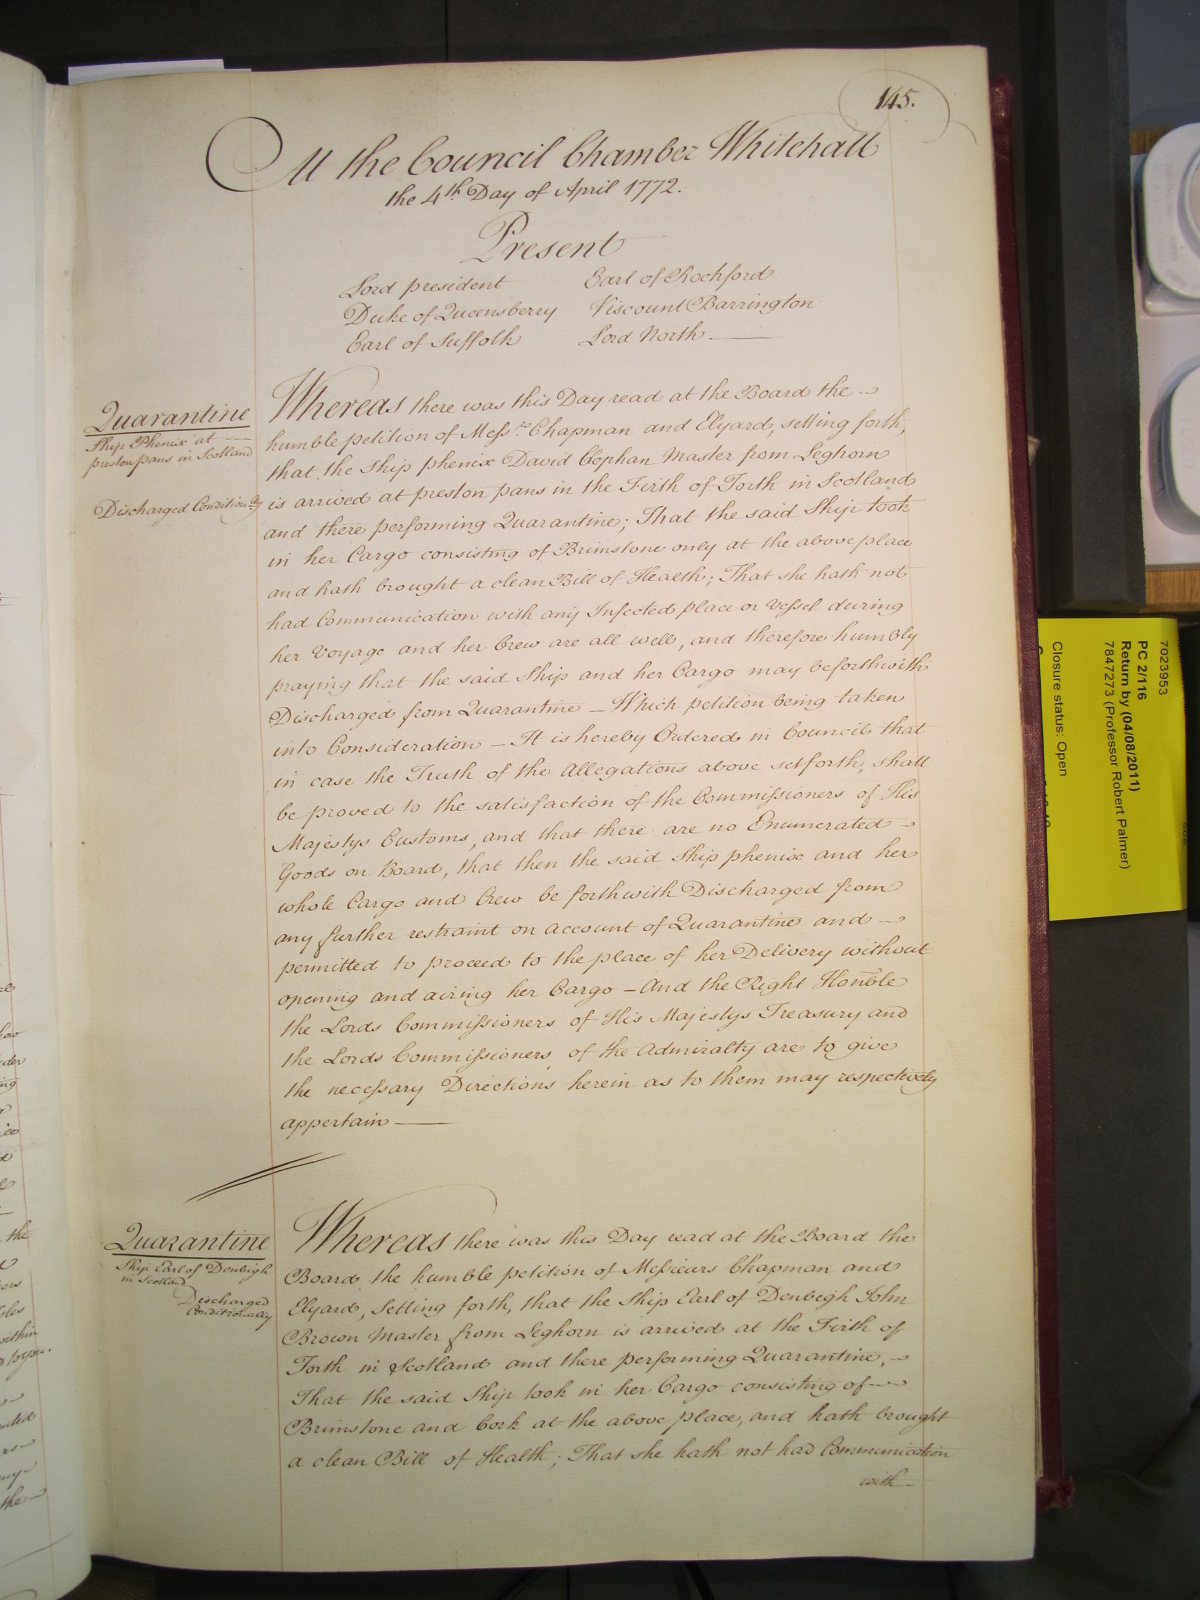 145.
At the Council Chamber Whitehall
the 4th Day of April 1772.
Present
Lord president Earl of Rochford
Duke of Queensberry Viscount Barrington
Earl of Suffolk Lord North
Quarantine
Ship Phenix at
prestonpans in Scotland
Discharged Conditionlly
Whereas there was this Day read at the Board the
humble petition of Messrs Chapman and Elyard, setting forth,
that the Ship phenix David Cephan Master from Leghorn
is arrived at preston pans in the Firth of Forth in Scotland
and there performing Quarantine; That the said Ship took
in her Cargo consisting of Brimstone only at the above place
and hath brought a clean Bill of Health; That she hath not
had Communication with any Infected place or Vessel during
her Voyage and her Crew are all well, and therefore humbly
praying that the said Ship and her Cargo may be forthwith
Discharged from Quarantine — Which petition being taken
into Consideration — It is hereby Ordered in Council that
in case the Truth of the Allegations above setforth, shall
be proved to the satisfaction of the Commissioners of His
Majestys Customs, and that there are no Enumerated
Goods on Board, that then the said Ship phenix and her
whole Cargo and Crew be forthwith Discharged from
any further restraint on account of Quarantine and
permitted to proceed to the place of her Delivery without
opening and airing her Cargo — And the Right Honble
the Lords Commissioners of His Majestys Treasury and
the Lords Commissioners of the Admiralty are to give
the necessary Directions herein as to them may respectively
appertain
Quarantine
Ship Earl of Denbigh
in Scotland
Discharged
Conditionally
Whereas there was this Day read at the Board the
Board the humble petition of Messieurs Chapman and
Elyard, Setting forth, that the Ship Earl of Denbegh John
Brown Master from Leghorn is arrived at the Firth of
Forth in Scotland and there performing Quarantine,
That the said Ship took in her Cargo consisting of
Brimstone and Cork at the above place, and hath brought
a clean Bill of Health; That she hath not had Communication
with
7023953
PC 2/116
Return by (04/08/2011)
7847273 (Professor Robert Palmer)
Closure status: Open